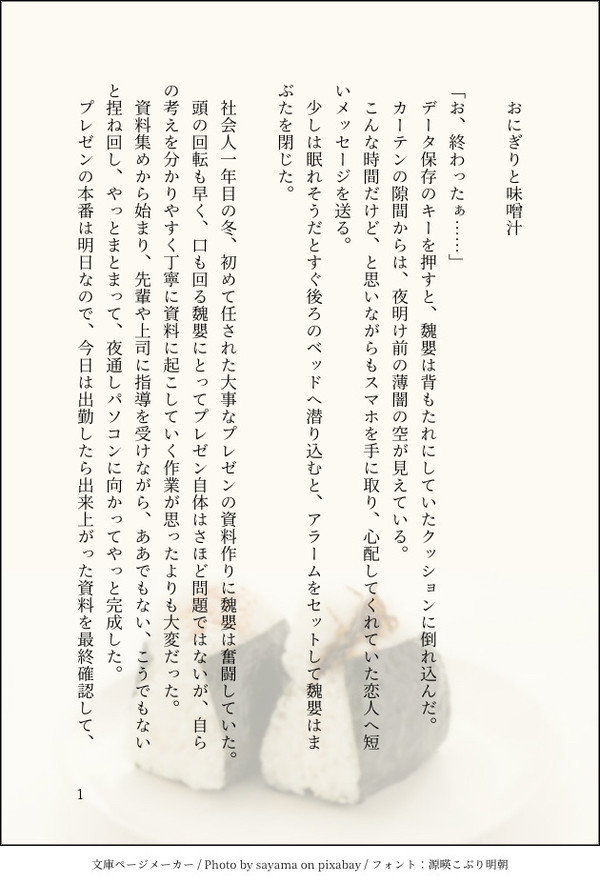 おにぎりと味噌汁
「お、終わったぁ……」
データ保存のキーを押すと、魏嬰は背もたれにしていたクッションに倒れ込んだ。
カーテンの隙間からは、夜明け前の薄闇の空が見えている。
こんな時間だけど、と思いながらもスマホを手に取り、心配してくれていた恋人へ短
いメッセージを送る。
少しは眠れそうだとすぐ後ろのベッドへ潜り込むと、アラームをセットして魏嬰はま
ぶたを閉じた。
社会人一年目の冬、初めて任された大事なプレゼンの資料作りに魏嬰は奮闘していた。
頭の回転も早く、口も回る魏嬰にとってプレゼン自体はさほど問題ではないが、自ら
の考えを分かりやすく丁寧に資料に起こしていく作業が思ったよりも大変だった。
資料集めから始まり、先輩や上司に指導を受けながら、ああでもない、こうでもない
と捏ね回し、やっとまとまって、夜通しパソコンに向かってやっと完成した。
プレゼンの本番は明日なので、今日は出勤したら出来上がった資料を最終確認して、
1
文庫ページメーカー / Photo by sayama on pixabay / フォント：源暎こぶり明朝